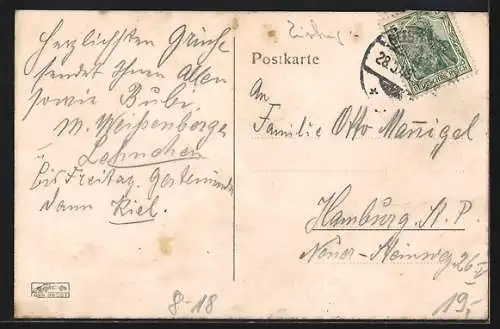 Herzlichsten Grüße
sendet Ihnen Allen
sowie Bubi,
M. Weißenberge
u. Lehnchen
bis Freitag. Geestemünde
dann Kiel.
Postkarte
An
Familie Otto Mannigel
Hamburg St. P.
Neuer-Steinweg 26
8-18
19,-